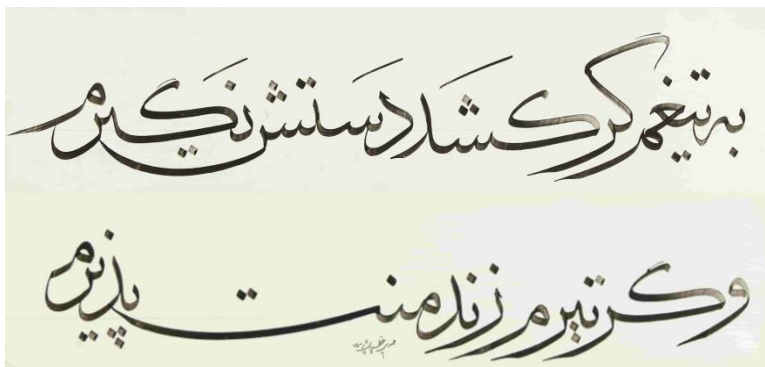 به تیغم گر کشد دستش نگیرم
وگر تیرم زند منت پذیرم